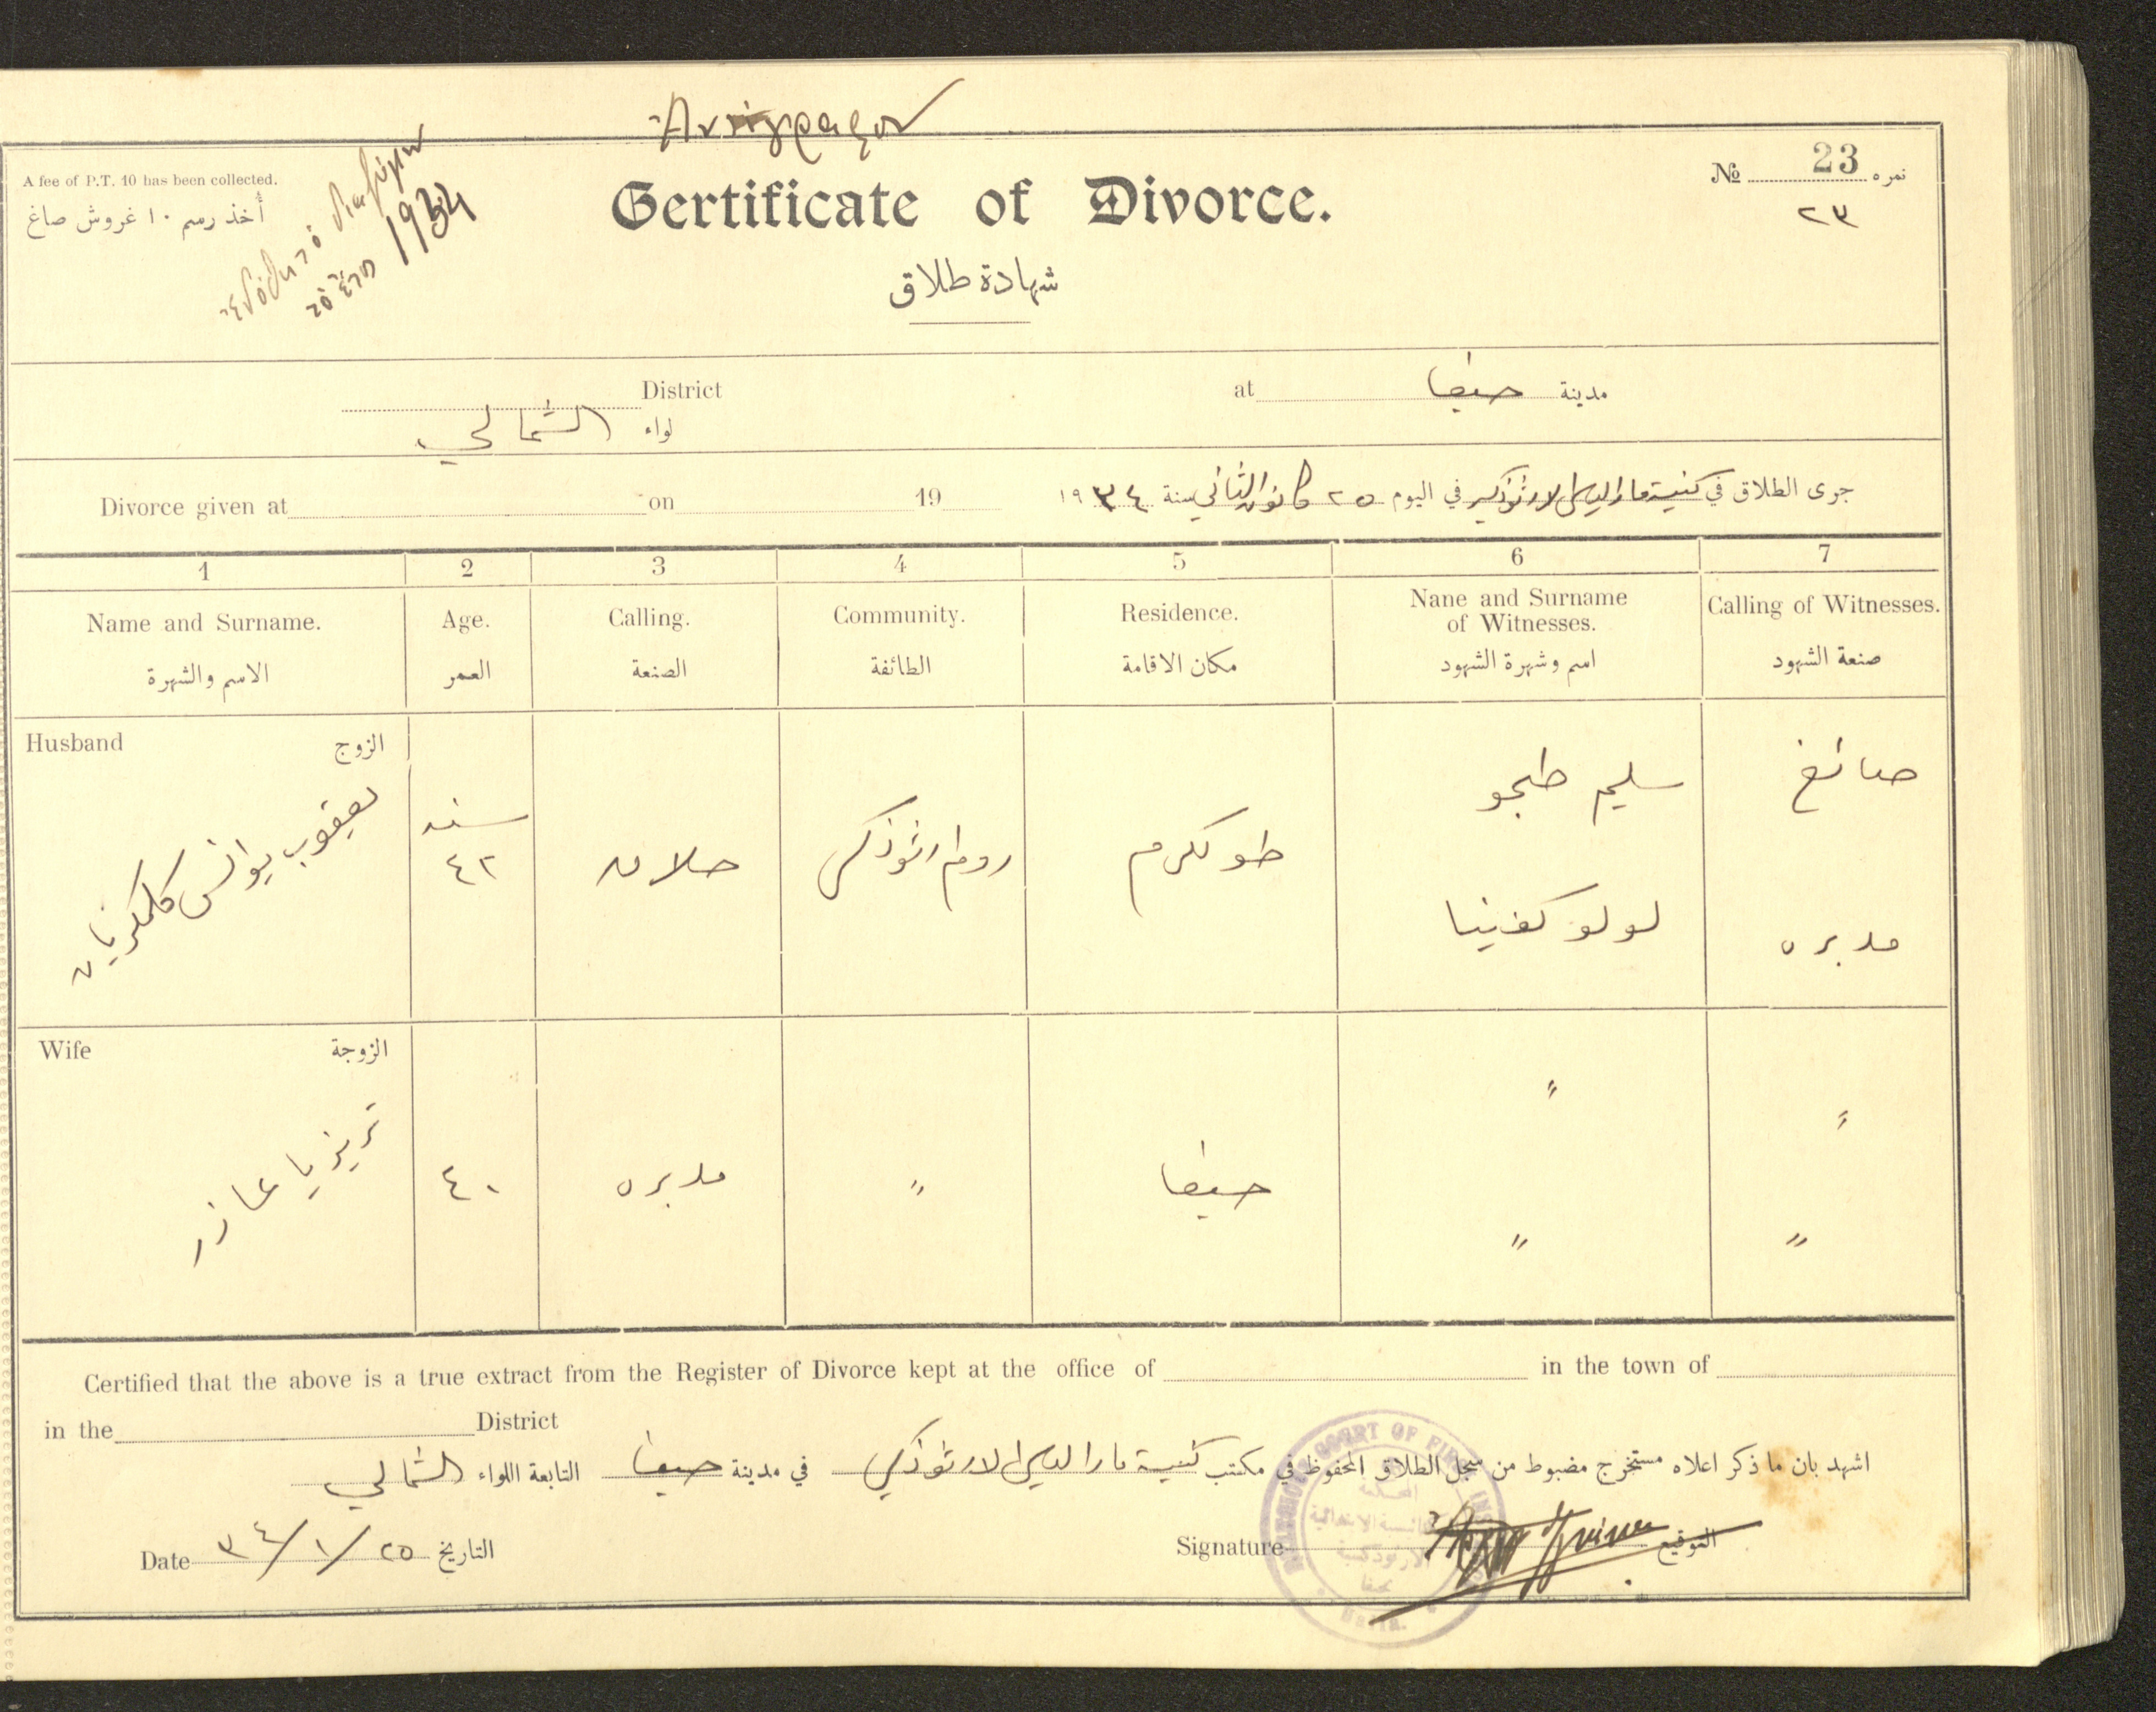 Ἀντίγραφον
A fee of P.T. 10 has been collected.
أُخذ رسم ١٠ غروش صاغ
1934
Certificate of Divorce.
شهادة طلاق
№ 23 نمره
٢٣
District
لواء الشمالي
at حيفا مدينة
Divorce given at on 19
جرى الطلاق في كنيسة مار الياس الارثوذكسي في اليوم ٢٥ كانون الثاني سنة ١٩٣٤
1 2 3 4 5 6 7
Name and Surname. Age. Calling. Community. Residence. Nane and Surname of Witnesses. Calling of Witnesses.
الاسم والشهرة العمر الصنعة الطائفة مكان الاقامة اسم وشهرة الشهود صنعة الشهود
Husband الزوج
يعقوب يوانس
سنه
٤٢
حلاق
روم ارثوذكس
طولكرم
سليم طبجو
صائغ
لولو
مدبره
Wife الزوجة
تريزيا عازر
٤٠
مدبره
"
حيفا
"
"
"
"
Certified that the above is a true extract from the Register of Divorce kept at the office of in the town of
in the District
اشهد بان ما ذكر اعلاه مستخرج مضبوط من سجل الطلاق المحفوظ في مكتب كنيسة مار الياس الارثوذكسي في مدينة حيفا التابعة اللواء الشمالي
Date ٢٥/١/٣٤ التاريخ
Signature التوقيع
COURT OF FIRST